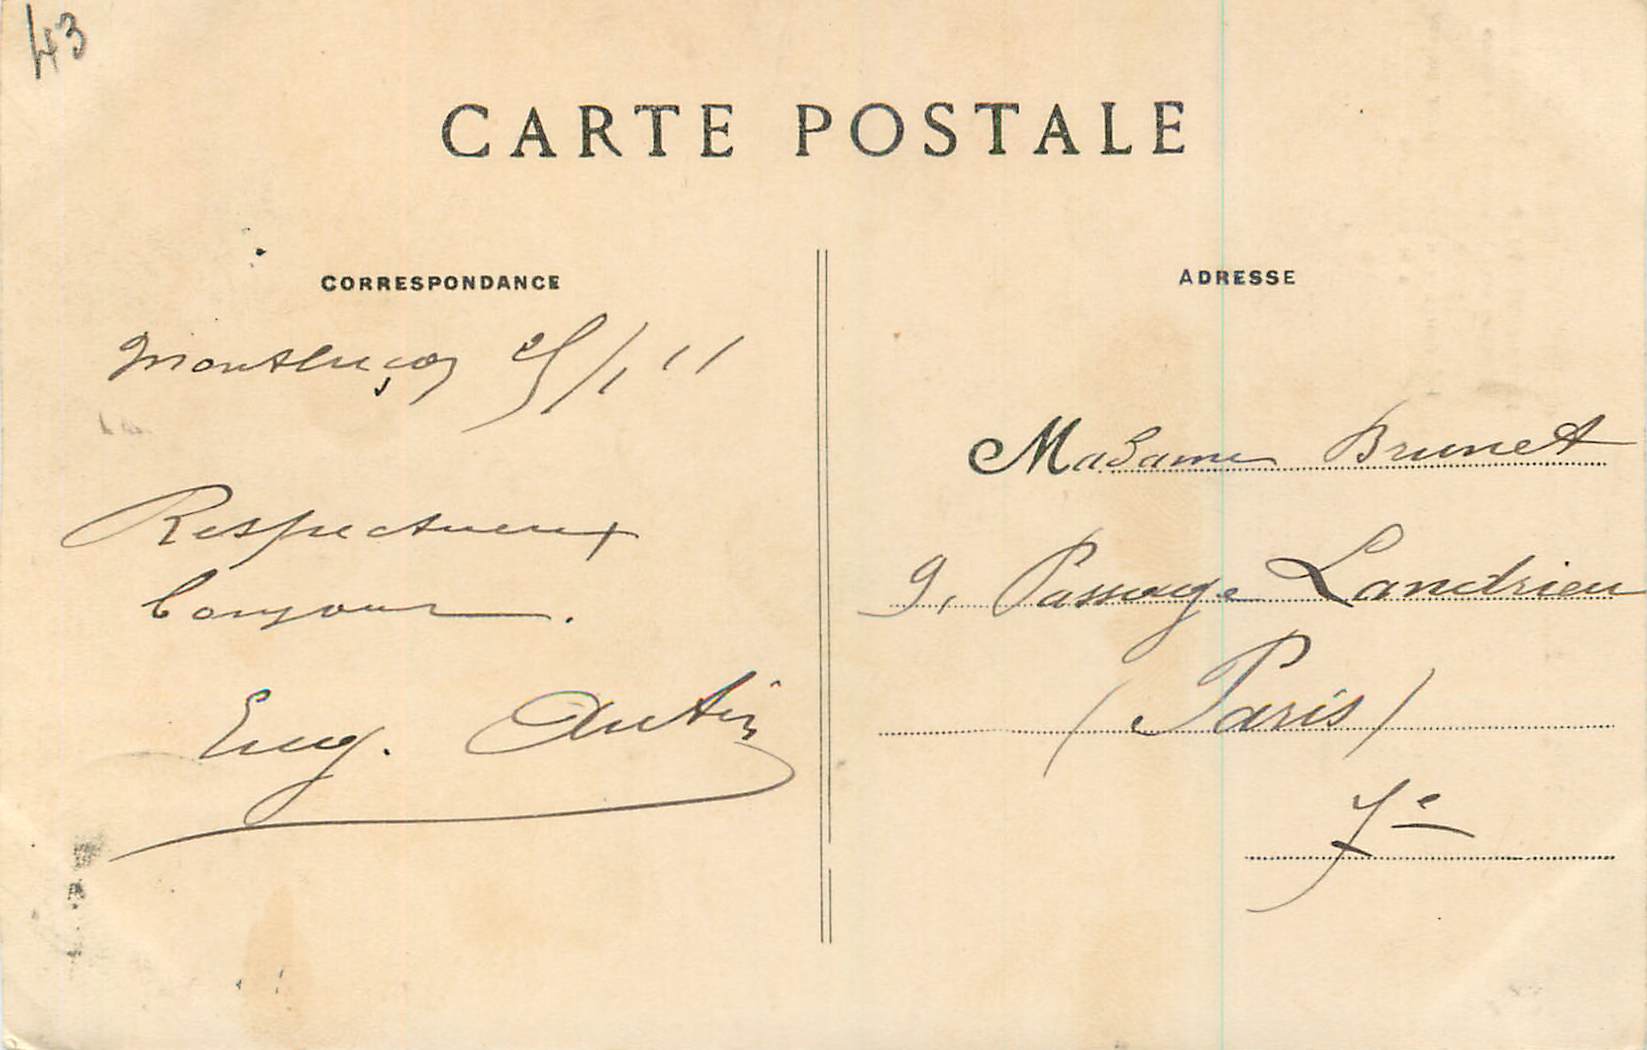 43
CARTE POSTALE
CORRESPONDANCE
Montluçon 25/1 11
Respectueux
bonjour.
Eug. Antin
ADRESSE
Madame Brunet
9, Passage Landrieu
(Paris)
7e